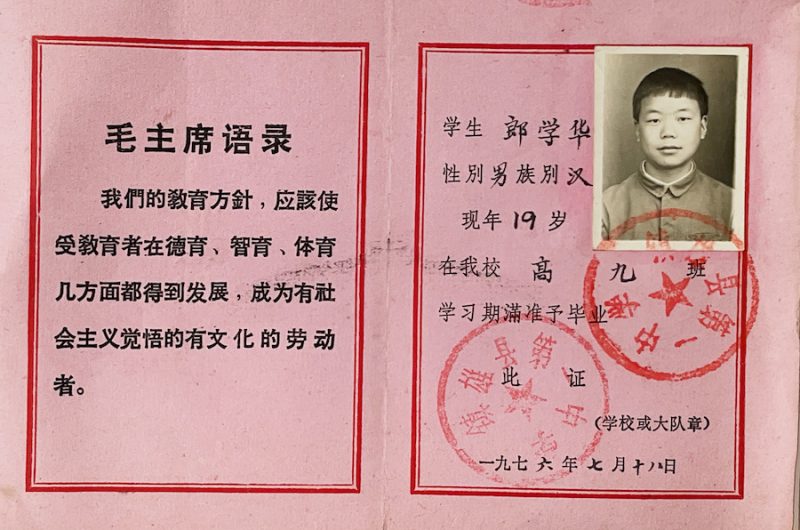 毛主席语录
我們的敎育方針，应該使
受敎育者在德育、智育、体育
几方面都得到发展，成为有社
会主义觉悟的有文化的劳动
者。
学生 郎学华
性別男族別汉
现年19岁
在我校 高 九 班
学习期滿准予毕业
此 证
（学校或大队章）
一九七六年七月十八日